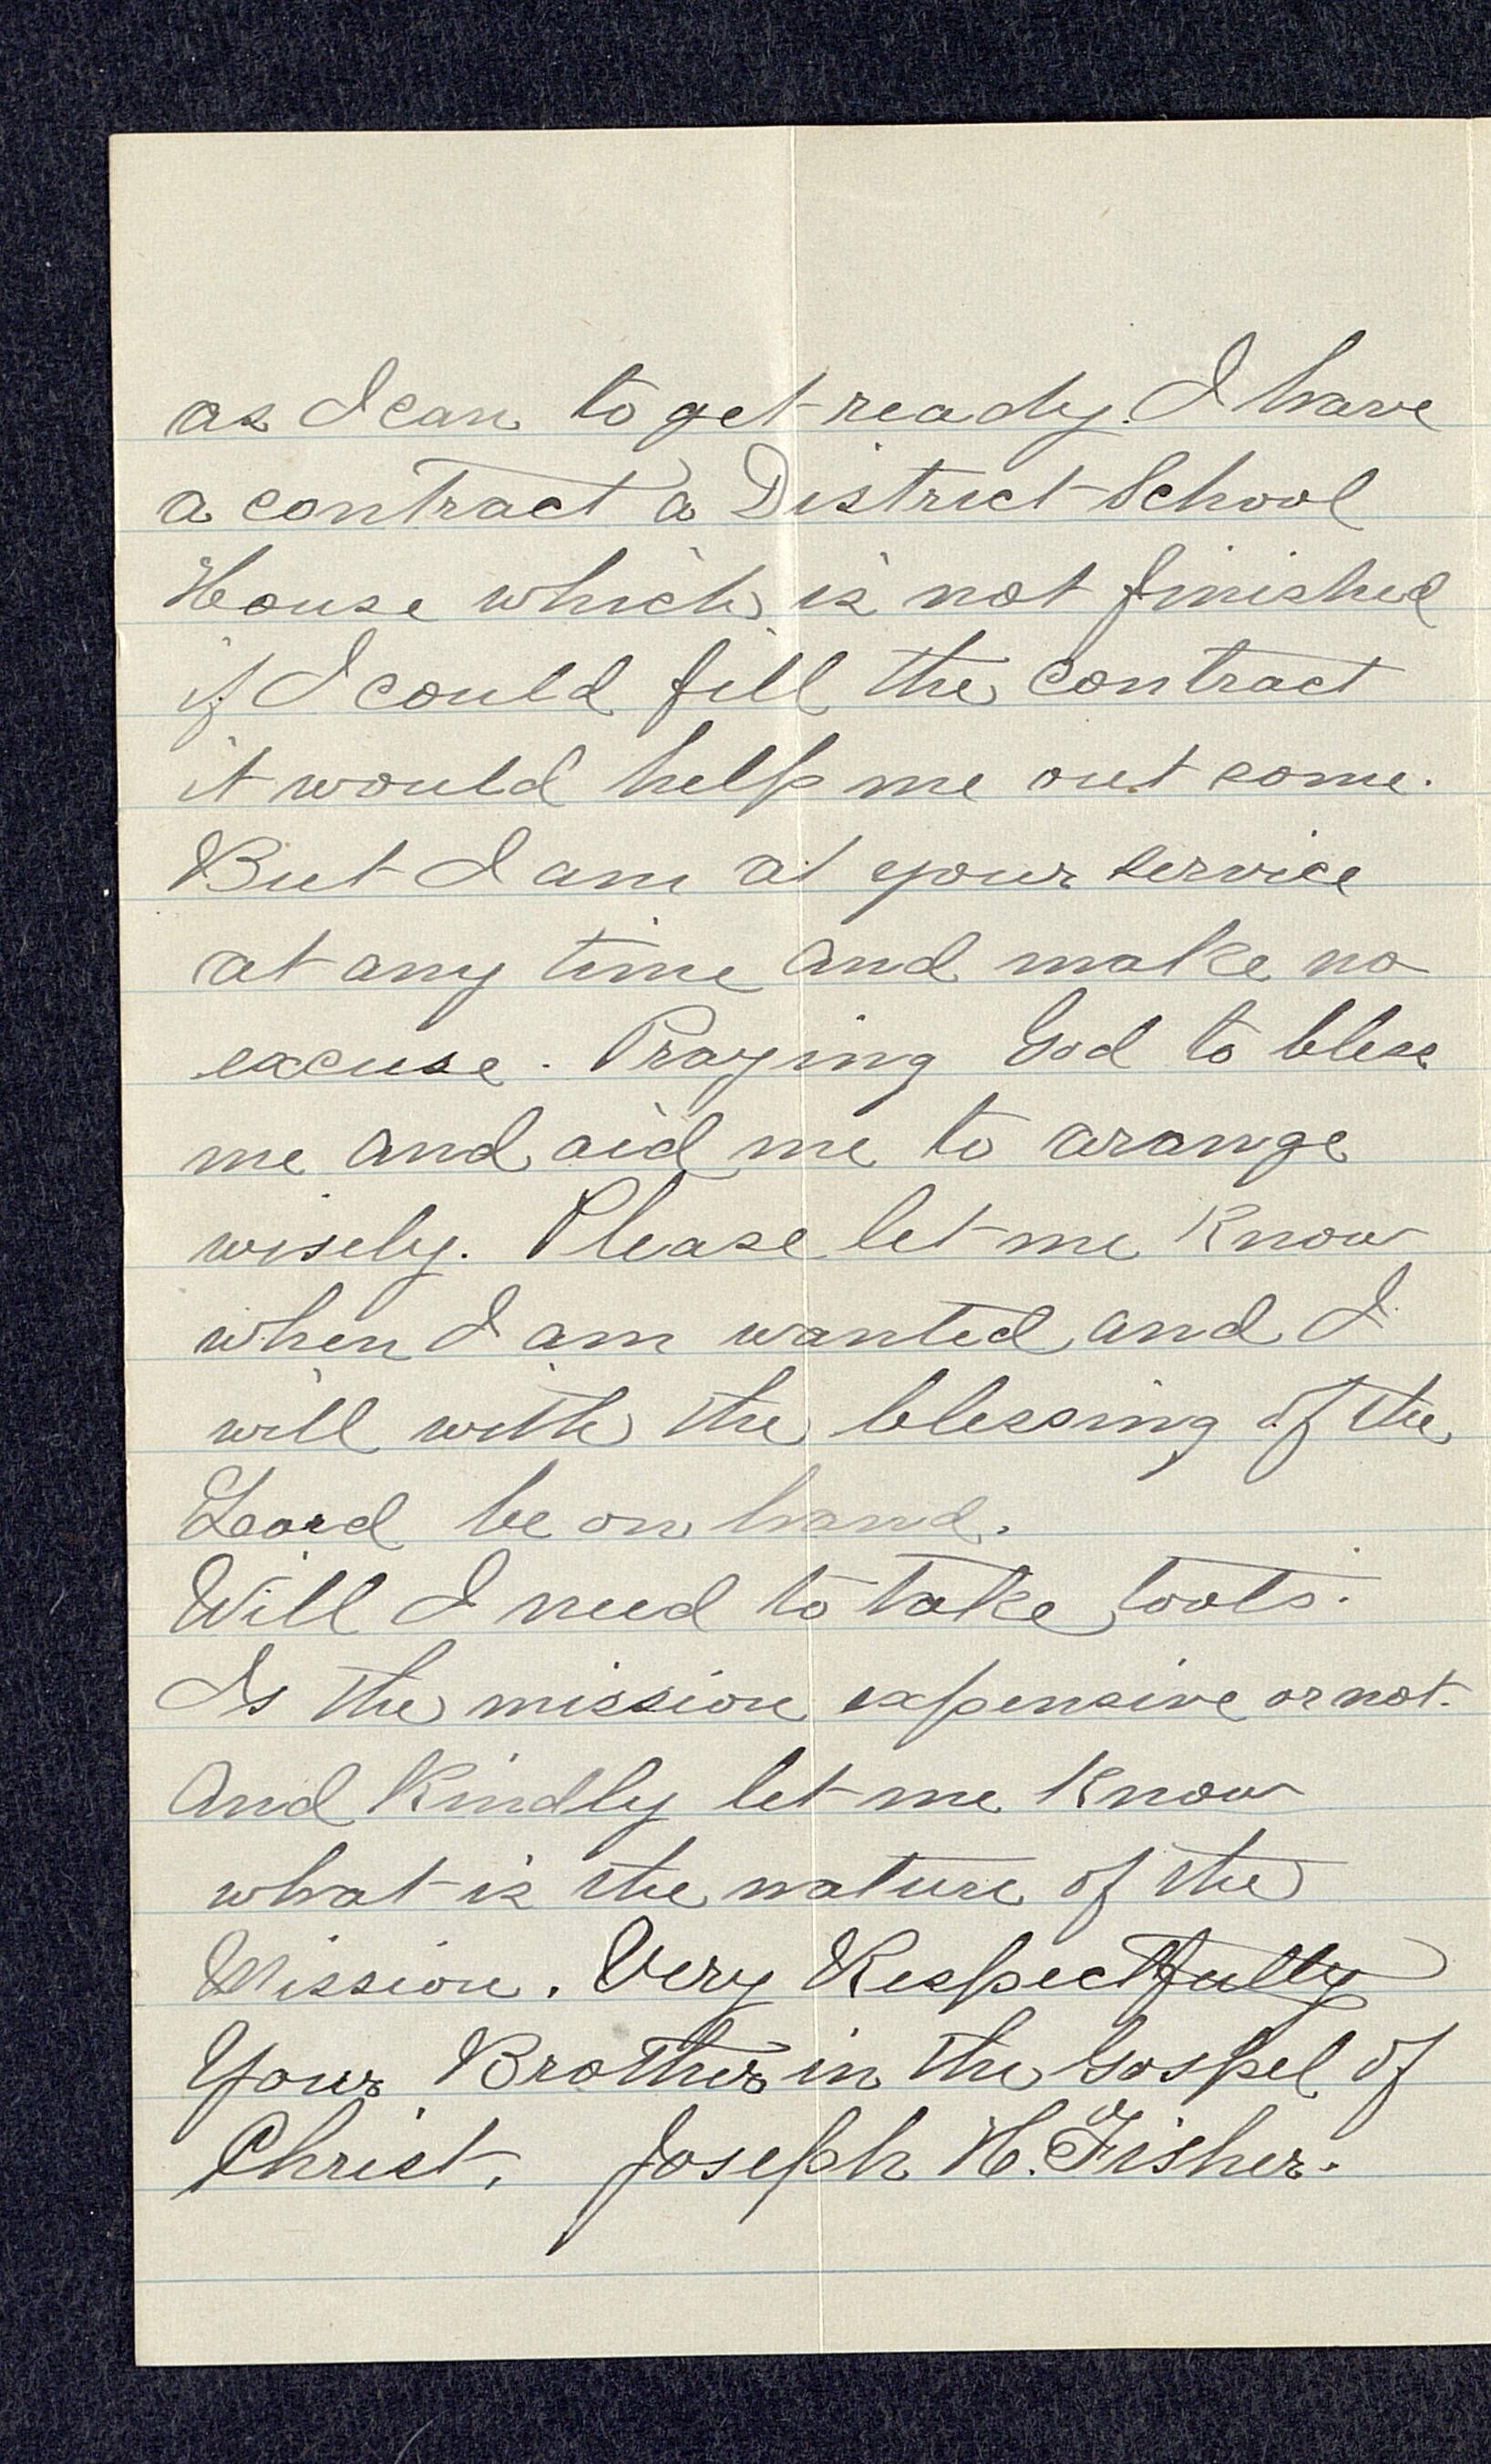 as I can to get ready. I have
a contract a District School
House which is not finished
if I could fill the contract
it would help me out some.
But I am at your service
at any time and make no
excuse. Praying God to bless
me and aid me to arange
wisely. Please let me know
when I am wanted and I
will with the blessing of the
Leord be on hand.
Will I need to take tools.
Is the mission expensive or not.
And Kindly let me know
what is the nature of the
Mission. Very Respectfully
Your Brother in the Gospel of
Christ, Joseph H. Fisher.